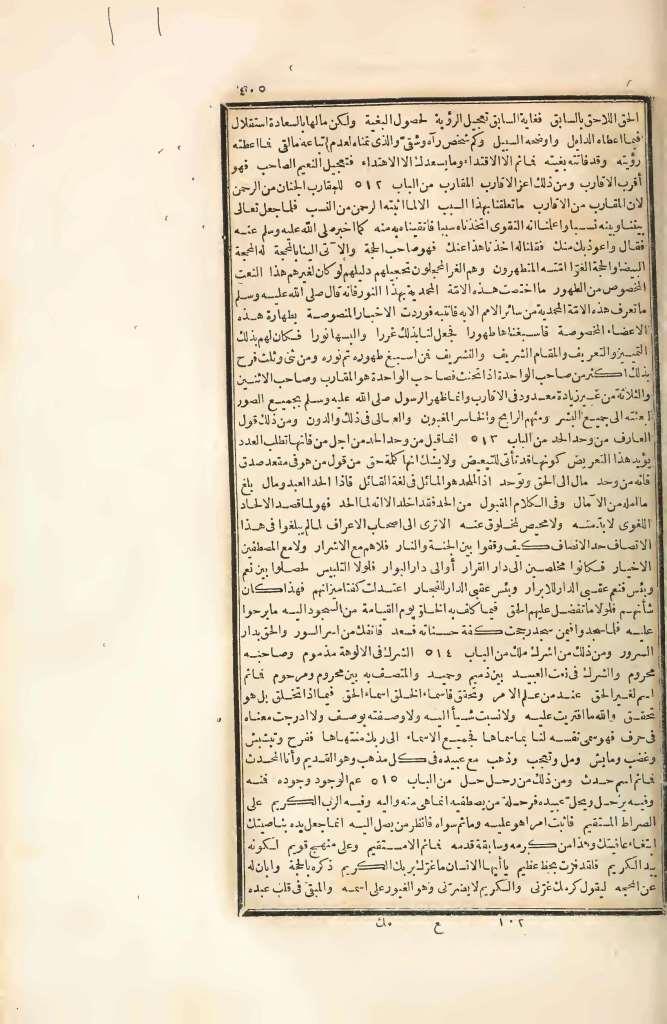 ٤٠٥
الحق اللاحق بالسابق فغاية السابق تعجيل الرؤية لحصول البغية ولكن مالها بالسعادة استقلال
فيما اعطاه الدليل واوضحه السبيل وكم شخص رآه وشقى والذى تمناه لعدم اتباعه مالقى فما اعطته
رؤيته وقد فاتته بغيته فما ثم الا الاقتداء وما يسعدك الا الاهتداء فتعجيل النعيم الصاحب فهو
أقرب الاقارب ومن ذلك اعز الاقارب المقارب من الباب ٥١٢ للمقارب الجنان من الرحمن
لان المقارب من الاقارب ما تعلقنا بهذا السبب الا لما اثبته الرحمن من النسب فلما جعل تعالى
بيننا وبينه نسبا واعلمنا انه التقوى اتخذناه سببا فاتقيناه به منه كما اخبر صلى الله عليه وسلم عنه
فقال واعوذ بك منك فقلنا له اخذنا هذا عنك فهو صاحب الحجة والآتى الينا بالمحجة له المحجة
البيضا والحجة الغرّا ائمته المتطهرون وهم الغر المحجلون تحجيلهم دليلهم لو كان لغيرهم هذا النعت
المخصوص من الطهور ما اختصت هذه الامّة المحمدية بهذا النور فانه قال صلى الله عليه وسلم
ما تعرف هذه الامّة المحمدية من سائر الامم الا به فانتبه فوردت الاخبار المنصوصة بطهارة هذه
الاعضاء المخصوصة فأسبغناها طهورا فجعل لنا بذلك غررا والبسها نورا فكان لهم بذلك
التمييز والتعريف والمقام الشريف والتشريف فمن اسبغ طهوره تم نوره ومن ثنى وثلث فرح
بذلك اكثر من صاحب الواحدة اذا تحنث فصاحب الواحدة هو المقارب وصاحب الاثنتين
والثلاثة من غير زيادة معدود فى الاقارب وانما ظهر الرسول صلى الله عليه وسلم بجميع الصور
لبعثته الى جميع البشر ومنهم الرابح والخاسر المغبون والعالى فى ذلك والدون ومن ذلك قول
العارف من وحد الحد من الباب ٥١٣ انما قيل من وحد الحد من اجل من فانها تطلب العدد
يؤيد هذا التعريض كونها قد تأتى للتبعيض ولا يشك انها كلمة حق من قول من هو فى مقعد صدق
فانه من وحد مال الى الحق وتوحد اذ الملحد هو المائل فى لغة القائل فاذا الحد العبد ومال بلغ
ما امله من الآمال وفى الكلام المقبول من الحد فقد اخلد الا انه لما الحد فهو لما قصد الالحاد
اللغوى لا بدّ منه ولا محيص لمخلوق عنه الا ترى الى اصحاب الاعراف لما لم يبلغوا فى هذا
الاتصاف حد الانصاف كيف وقفوا بين الجنة والنار فلا هم مع الاشرار ولا مع المصطفين
الاخيار فكانوا مخلصين الى دار القرار أو الى دار البوار فلولا التلبيس لحصلوا بين نعم
وبئس فنعم عقبى الدار للابرار وبئس عقبى الدار للفجار اعتدلت كفتا ميزانهم فهذا كان
شأنهم فلولا ما تفضل عليهم الحق فيما كلف به الخلق يوم القيامة من السجود اليه ما برحوا
عليه فلما سجدوا فيمن سجد رجحت كفة حسناته فسعد فانفك من اسر السور والحق بدار
السرور ومن ذلك من اشرك ملك من الباب ٥١٤ الشرك فى الالوهة مذموم وصاحبه
محروم والشرك فى نعت العبيد بين ذميم وحميد والمتصف به بين محروم ومرحوم فما ثم
اسم لغير الحق عند من علم الامر وتحقق فاسماء الخلق اسماء الحق فيما اذا تخلق بل هو
تحقق والله ما افتريت عليه ولا نسبت شيأ اليه ولا وصفته بوصف ولا ادرجت معناه
فى حرف فهو سمى نفسه لنا بما سماها فجميع الاسماء الى ربك منتهاها ففرح وتبشبش
وغضب وما بش ومل وتعجب وذهب مع عبيده فى كل مذهب وهو القديم وأنا المحدث
فما ثم اسم حدث ومن ذلك من رحل حل من الباب ٥١٥ عم الوجود وجوده فمنه
وفيه يرحل ويحل عبيده فرحلة من يصطفيه انما هى منه واليه وفيه الرب الكريم على
الصراط المستقيم فأثبت امرا هو عليه وما ثم سواه فانظر من يصل اليه انما جعل يده بناصيتك
ابتغاء عافيتك وهذا من كرمه وسابقة قدمه فما ثم الا مستقيم وعلى منهج قويم لكونه
بيد الكريم فلقد فزت بحظ عظيم يا أيها الانسان ما غرّك بربك الكريم ذكره بالحجة وابان له
عن المحجه ليقول كرمك غرّنى والكريم لا يضرّنى وهو الغيور على اسمه والمبقى فى قلب عبده
١٠٢ ع مك